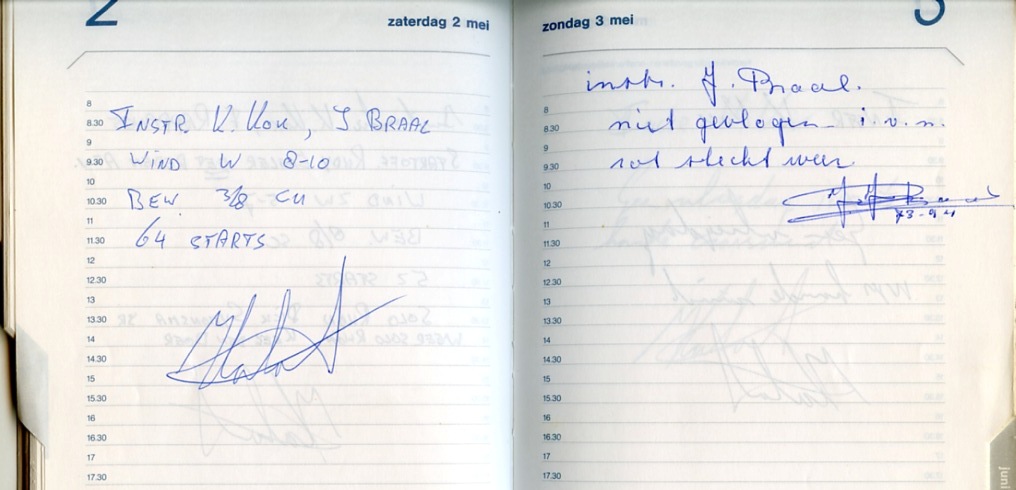 2
zaterdag 2 mei
8
8.30
9
9.30
10
10.30
11
11.30
12
12.30
13
13.30
14
14.30
15
15.30
16
16.30
17
17.30
INSTR. K. KOK, J BRAAL
WIND W 8-10
BEW 3/8 CU
64 STARTS
3
zondag 3 mei
8
8.30
9
9.30
10
10.30
11
11.30
12
12.30
13
13.30
14
14.30
15
15.30
16
16.30
17
17.30
instr. J. Braal.
niet gevlogen i.v.m.
rot slecht weer.
juni